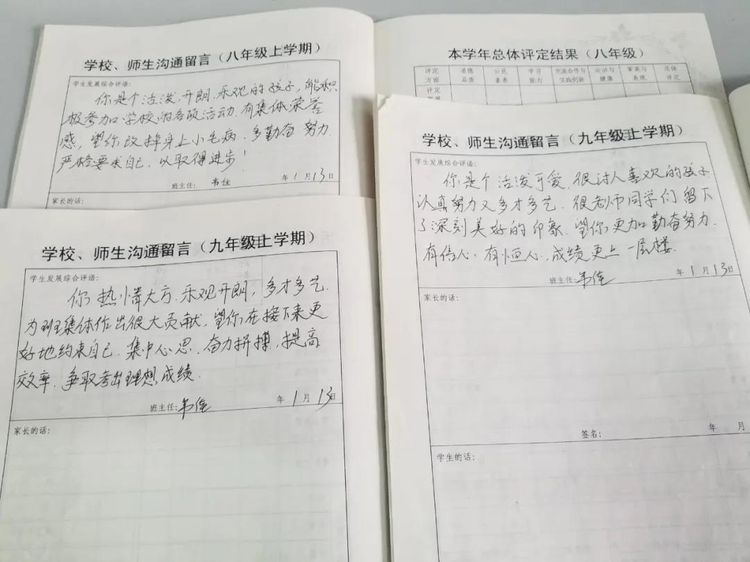 学校、师生沟通留言（八年级上学期）
学生发展综合评语：
你是个活泼,开朗,乐观的孩子,能积
极参加学校的各项活动.有集体荣誉
感,望你改掉身上小毛病,多勤奋努力
严格要求自己,以取得进步!
班主任: 韦佳 年 1 月 13 日
家长的话：
本学年总体评定结果（八年级）
评定 道德 公民 学习 交流合作与 运动与 审美与 总体
方面 品质 素养 能力 实践创新 健康 表现 评定
评定
学校、师生沟通留言（九年级上学期）
学生发展综合评语：
你热情大方.乐观开朗,多才多艺.
为班集体作出很大贡献,望你在接下来更
好地约束自己.集中心思.奋力拼搏,提高
效率.争取考出理想成绩.
班主任: 韦佳 年 1 月 13 日
家长的话：
学校、师生沟通留言（九年级上学期）
学生发展综合评语：
你是个活泼可爱.很讨人喜欢的孩子
认真努力又多才多艺.很老师同学们留下
了深刻美好的印象.望你更加勤奋努力.
有信心.有恒心.成绩更上一层楼.
班主任: 韦佳 年 1 月 13 日
家长的话：
签名： 年 月
学生的话：